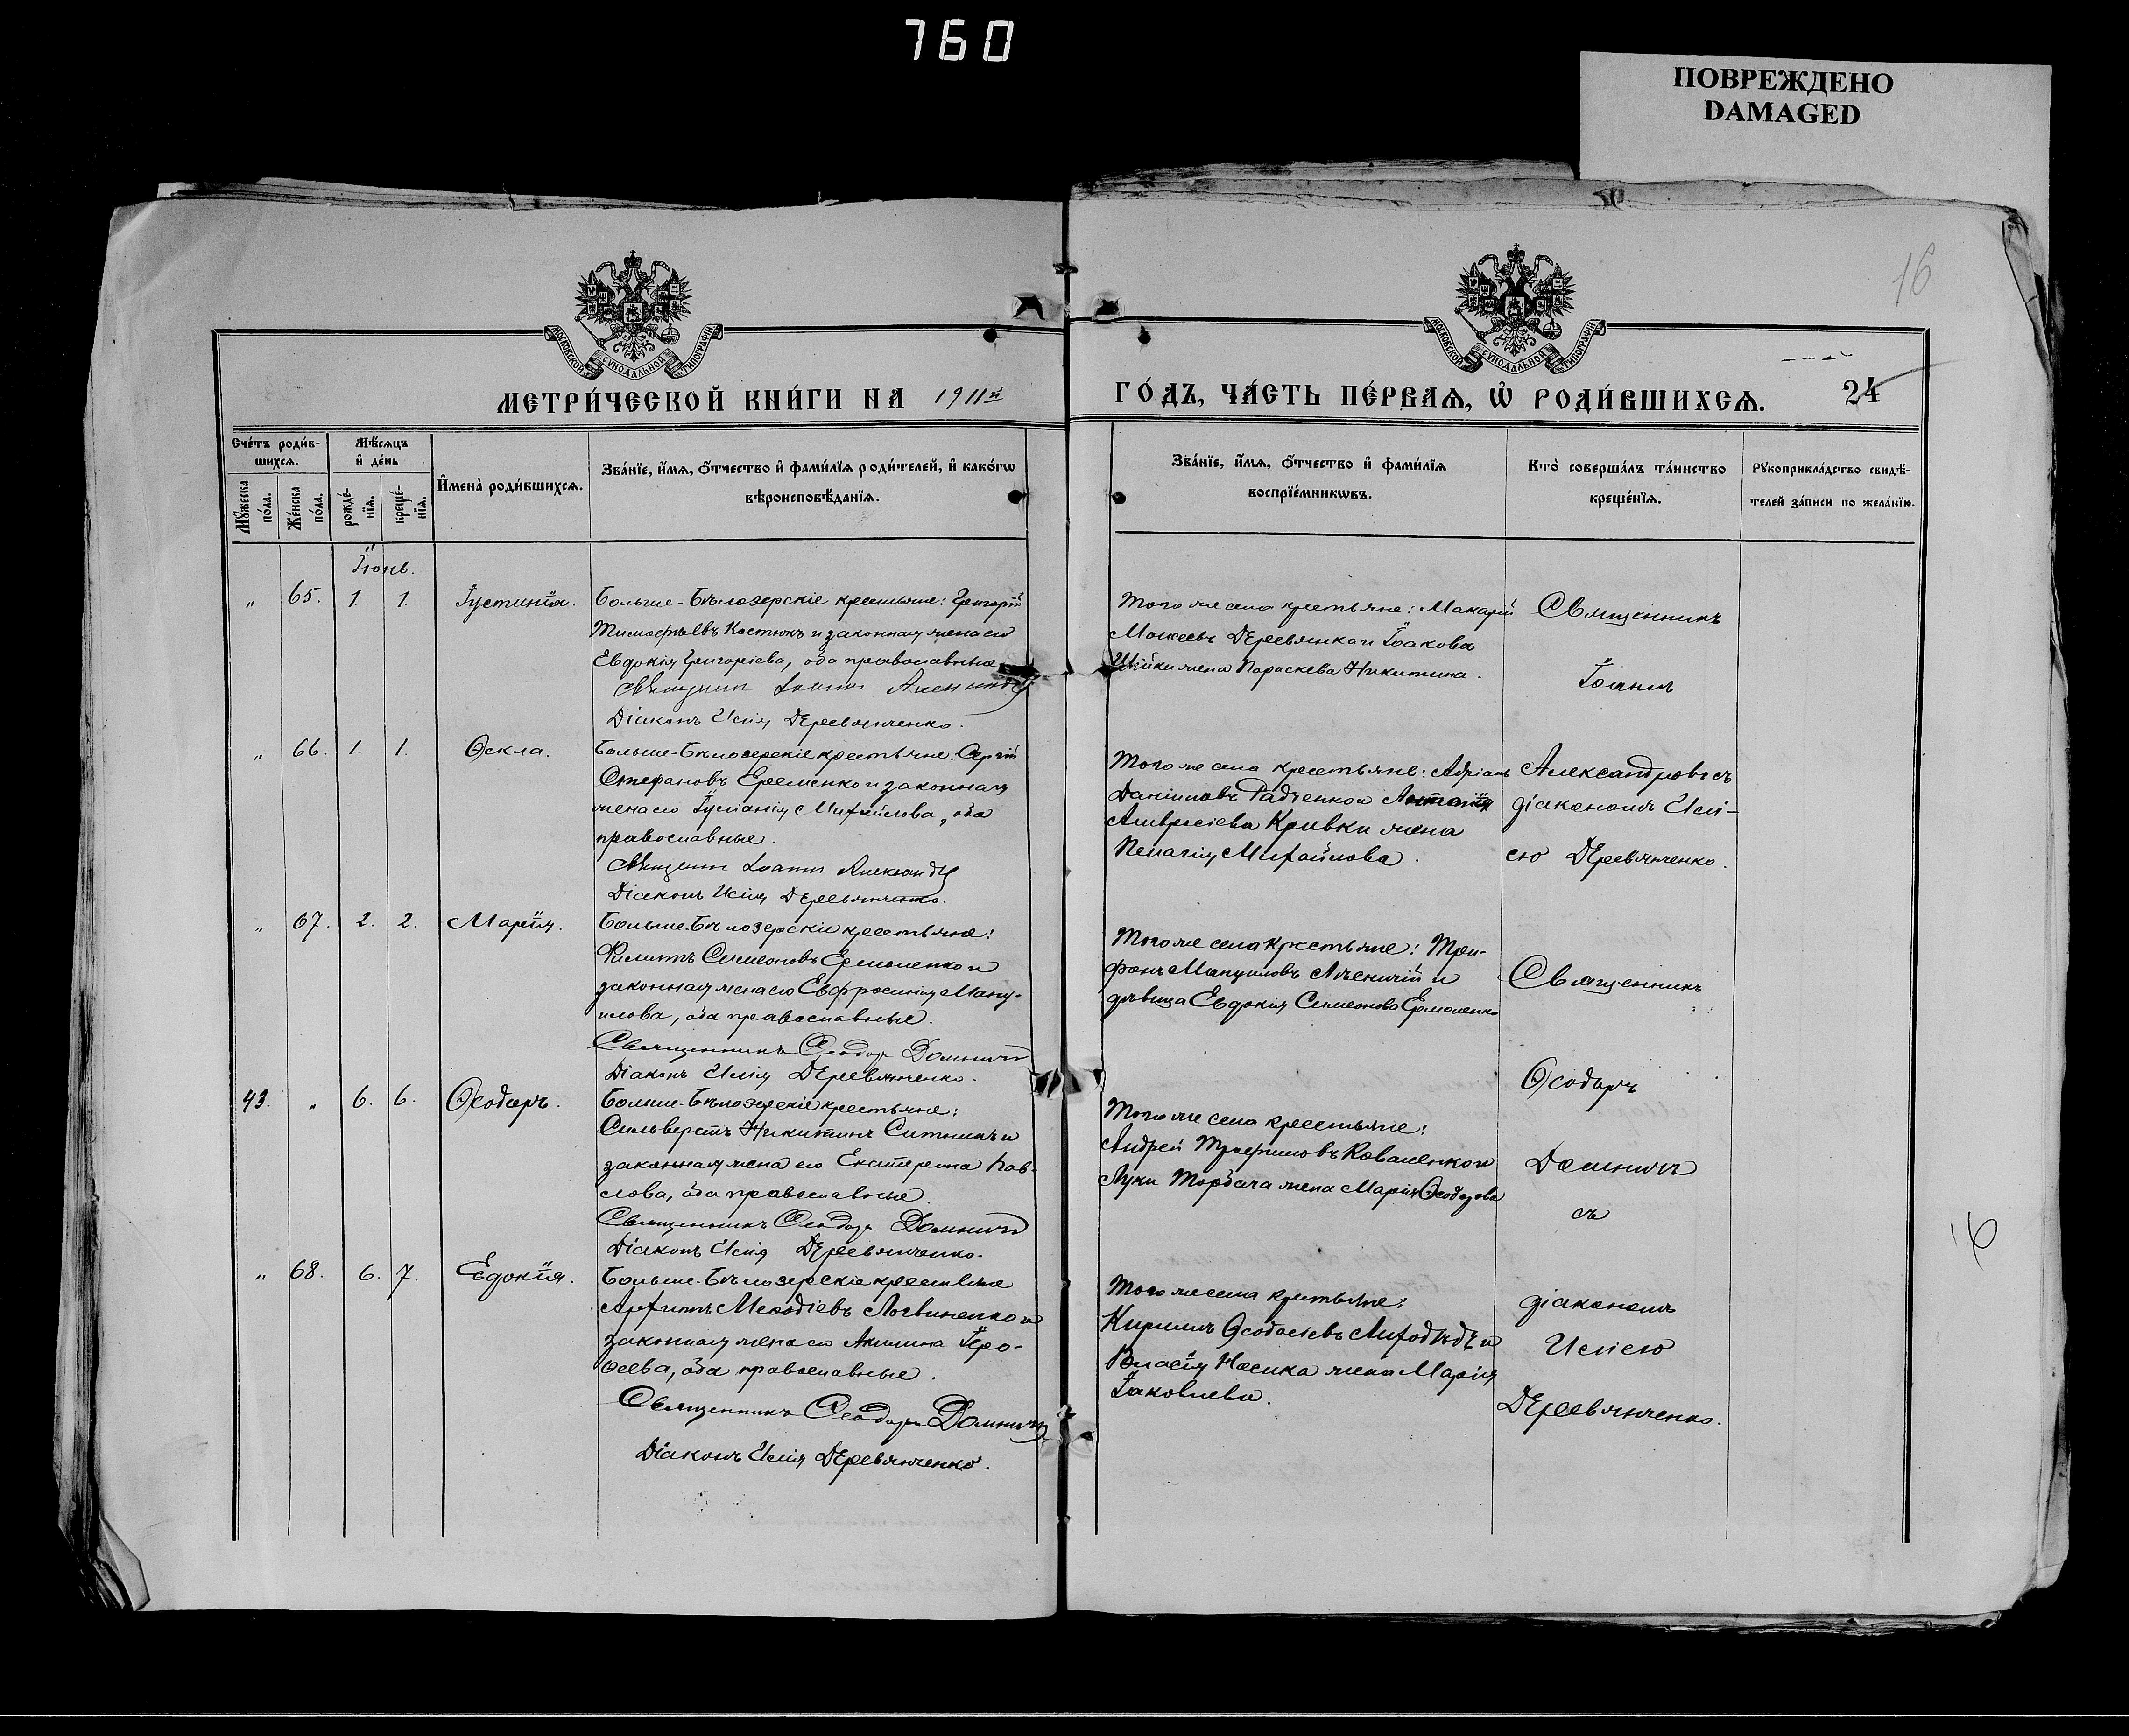 760
ПОВРЕЖДЕНО
DAMAGED
16
МОСКОВСКОЙ СѴНОДАЛЬНОЙ ТИПОГРАФІИ
МОСКОВСКОЙ СѴНОДАЛЬНОЙ ТИПОГРАФІИ
МЕТРИ́ЧЕСКОЙ КНИ́ГИ НА 1911й
ГО́ДЪ, ЧА́СТЬ ПЕ́РВАѦ, Ѡ҆ РОДИ́ВШИХСѦ. 24
Сче́тъ роди́в-
шихсѧ.
Мꙋ́жеска по́ла.
Же́нска по́ла.
Мѣ́сѧцъ
и҆ де́нь
рожде́-
нїѧ.
креще́-
нїѧ.
И҆мена̀ роди́вшихсѧ.
Зва́нїе, и҆́мѧ, ѻ҆́тчество и҆ фами́лїѧ роди́телей, и҆ како́гѡ
вѣроисповѣ́данїѧ.
Зва́нїе, и҆́мѧ, ѻ҆́тчество и҆ фами́лїѧ
воспрїе́мникѡвъ.
Кто̀ соверша́лъ та́инство
креще́нїѧ.
Рꙋкоприкла́дство свидѣ́-
телей за́писи по жела́нїю.
Іюнь.
" 65. 1. 1. Іустинія.
Больше-Бѣлозерскіе крестьяне: Григорій
Тимофѣевъ Костюкъ и законная жена его
Евдокія Григоріева, оба православные
Священникъ Іоаннъ Александровъ
Діаконъ Илія Деревянченко.
Того же села крестьяне: Макарій
Моисеевъ Деревянко и Іоакова
жена Параскева Никитина.
Священникъ
Іоаннъ
" 66. 1. 1. Ѳекла.
Больше-Бѣлозерскіе крестьяне: Сергій
Стефановъ Еременко и законная
жена его Іуліанія Михайлова, оба
православные.
Священникъ Іоаннъ Александровъ
Діаконъ Илія Деревянченко.
Того же села крестьяне: Адріанъ
Даніиловъ Радченко и
Амвросіева Кривки жена
Пелагія Михайлова.
Александровъ съ
діакономъ Илі-
ею Деревянченко.
" 67. 2. 2. Марія.
Больше-Бѣлозерскіе крестьяне:
Филиппъ Симеоновъ Ермоленко и
законная жена его Евфросинія Ману-
илова, оба православные.
Священникъ Ѳеодоръ Домничъ
Діаконъ Илія Деревянченко.
Того же села крестьяне: Три-
фонъ Мануиловъ и
дѣвица Евдокія Симеонова Ермоленко
Священникъ
Ѳеодоръ
43. " 6. 6. Ѳеодоръ.
Больше-Бѣлозерскіе крестьяне:
Сильверстъ Никитинъ Ситникъ и
законная жена его Екатерина Пав-
лова, оба православные.
Священникъ Ѳеодоръ Домничъ
Діаконъ Илія Деревянченко.
Того же села крестьяне:
Андрей Трофимовъ Коваленко и
Луки жена Марія Ѳеодорова
Домничъ
съ
" 68. 6. 7. Евдокія.
Больше-Бѣлозерскіе крестьяне
Архипъ Меѳодіевъ Логвиненко и
законная жена его Акилина Іеро-
ѳеева, оба православные.
Священникъ Ѳеодоръ Домничъ
Діаконъ Илія Деревянченко.
Того же села крестьяне:
Кириллъ Ѳеодосіевъ Лиходѣдъ и
Власія Носика жена Марія
Іаковлева.
діакономъ
Иліею
Деревянченко.
16